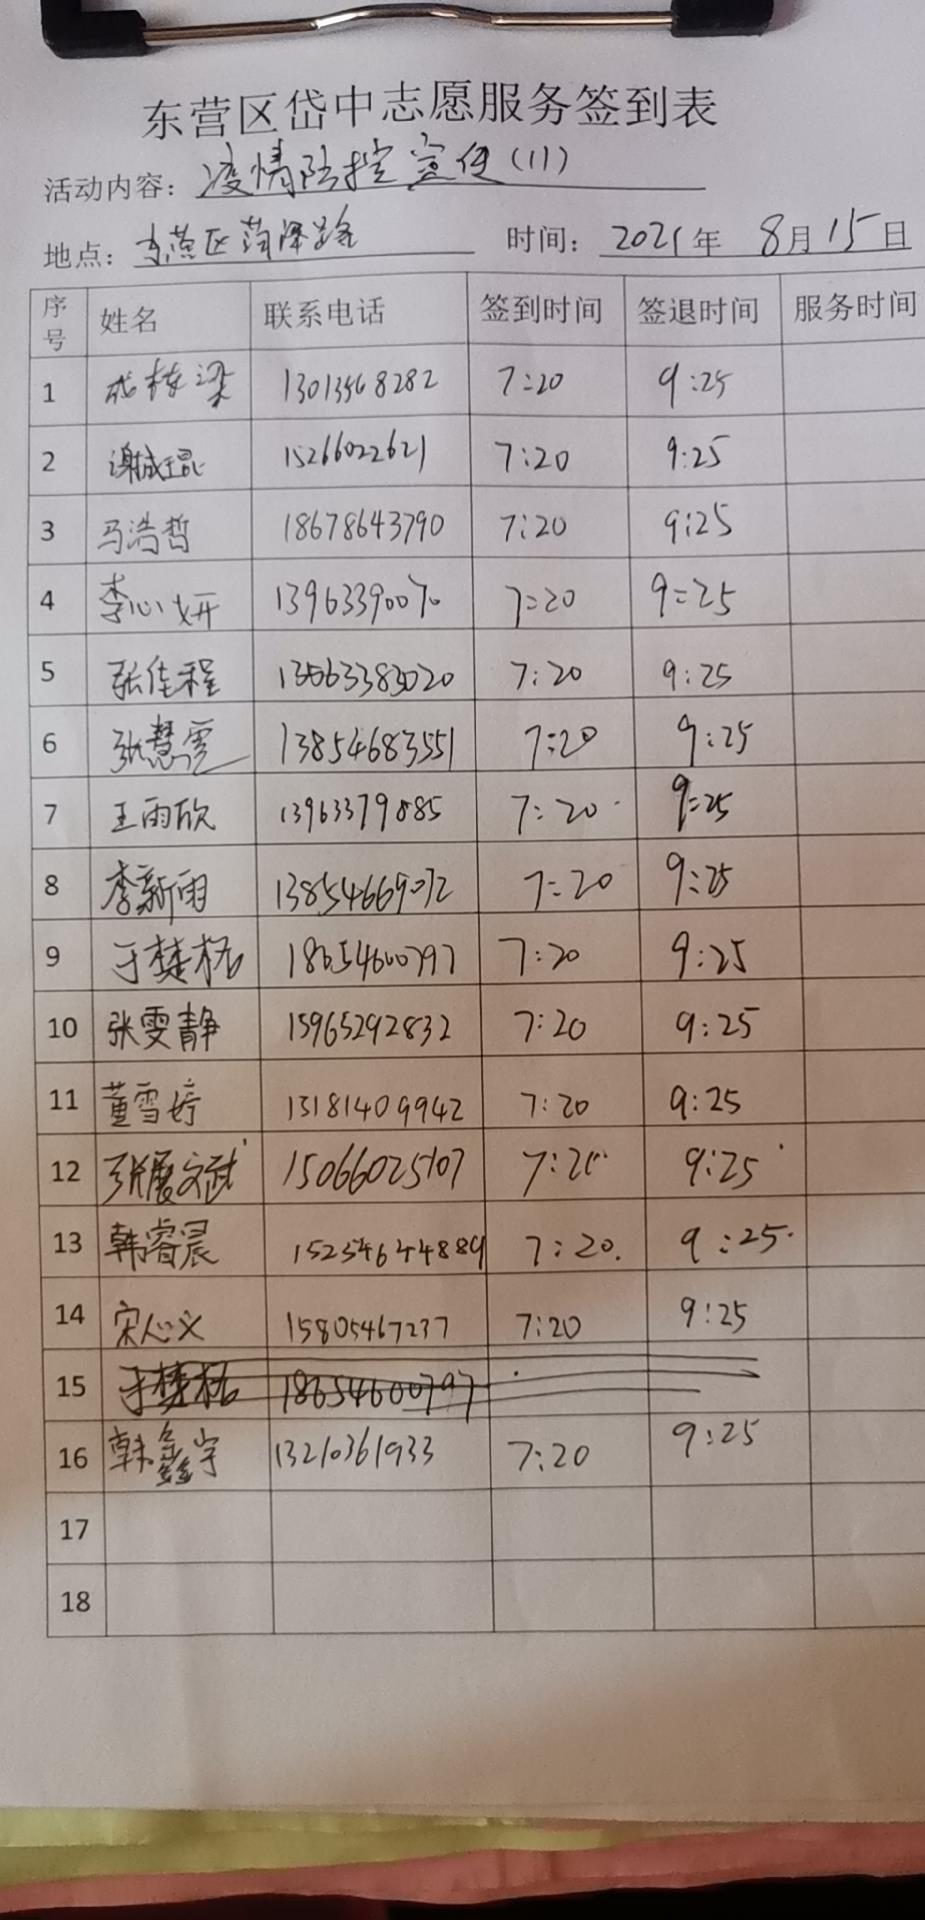 东营区岱中志愿服务签到表
活动内容：疫情防控宣传(11)
地点：东营区菏泽路 时间：2021年 8月15日
序号 姓名 联系电话 签到时间 签退时间 服务时间
1 成栋梁 13013568282 7:20 9:25
2 谢斌琨 15266022621 7:20 9:25
3 马浩哲 18678643790 7:20 9:25
4 李心妍 13963390070 7:20 9:25
5 张佳程 13563383020 7:20 9:25
6 张慧雯 13854683551 7:20 9:25
7 王雨欣 13963379885 7:20 9:25
8 李新雨 13854669072 7:20 9:25
9 于楚栎 18654600797 7:20 9:25
10 张雯静 15965292832 7:20 9:25
11 董雪婷 13181409942 7:20 9:25
12 张展文武 15066025107 7:20 9:25
13 韩睿晨 15254644889 7:20 9:25
14 宋心义 15805467237 7:20 9:25
15 18654600797
16 韩鑫宇 13210361933 7:20 9:25
17
18